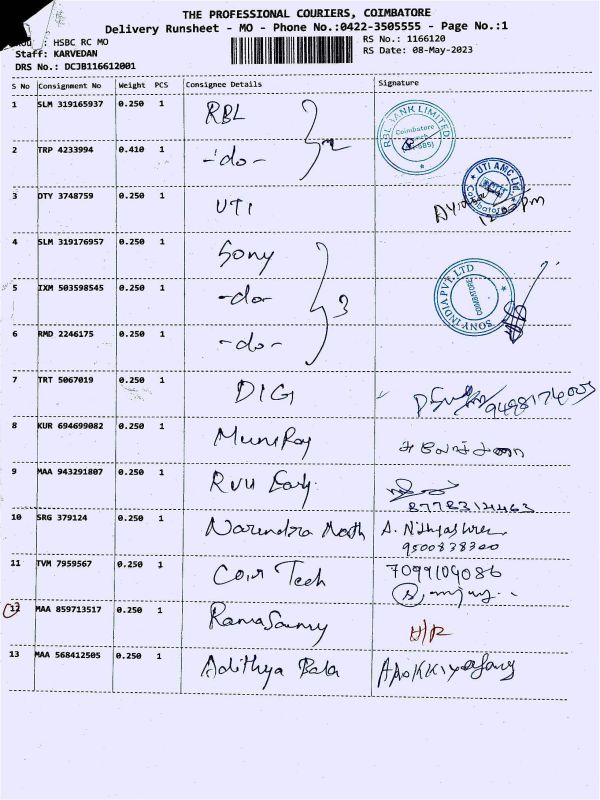 THE PROFESSIONAL COURIERS, COIMBATORE
Delivery Runsheet - MO - Phone No.:0422-3505555 - Page No.:1
: HSBC RC MO
RS No.: 1166120
Staff: KARVEDAN
RS Date: 08-May-2023
DRS No.: DCJB116612001
S No Consignment No Weight PCS Consignee Details Signature
1 SLM 319165937 0.250 1 RBL
RBL BANK LIMITED
Coimbatore
2 TRP 4233994 0.410 1 -do- 2
UTI AMC Ltd.
Coimbatore
3 DTY 3748759 0.250 1 UTI
4 SLM 319176957 0.250 1 Sony
SONY INDIA PVT. LTD
COIMBATORE
5 IXM 503598545 0.250 1 -do- 3
6 RMD 2246175 0.250 1 -do-
7 TRT 5067019 0.250 1 DIGI
8 KUR 694699082 0.250 1
9 MAA 943291807 0.250 1
8778312463
10 SRG 379124 0.250 1 Narendra
9500838300
11 TVM 7959567 0.250 1 Coir Tech 7099109086
12 MAA 859713517 0.250 1 RamaSamy H/R
13 MAA 568412505 0.250 1 Adithya Bala